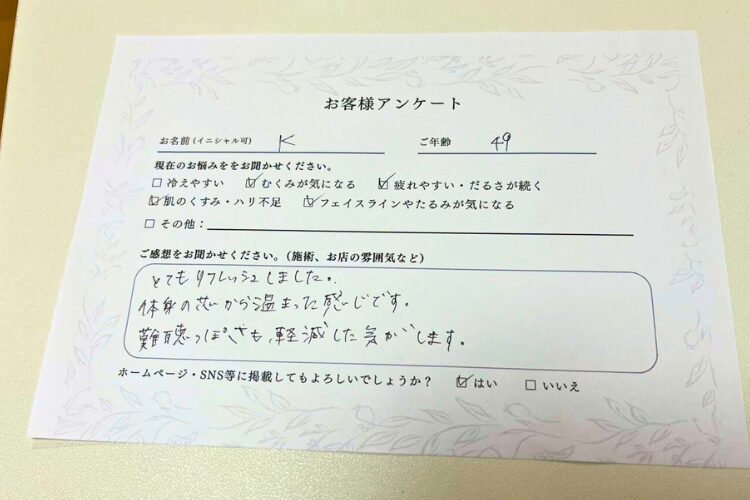 お客様アンケート
お名前(イニシャル可) K ご年齢 49
現在のお悩みををお聞かせください。
☐ 冷えやすい ☑ むくみが気になる ☑ 疲れやすい・だるさが続く
☑ 肌のくすみ・ハリ不足 ☑ フェイスラインやたるみが気になる
☐ その他：
ご感想をお聞かせください。（施術、お店の雰囲気など）
とてもリフレッシュしました。
体身の芯から温まった感じです。
難聴っぽさも、軽減した気がします。
ホームページ・SNS等に掲載してもよろしいでしょうか？ ☑ はい ☐ いいえ